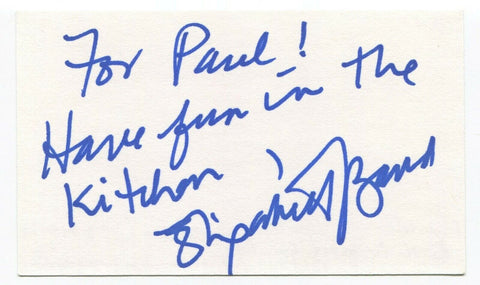 For Paul!
Have fun in the
Kitchen,
Elizabeth Bard